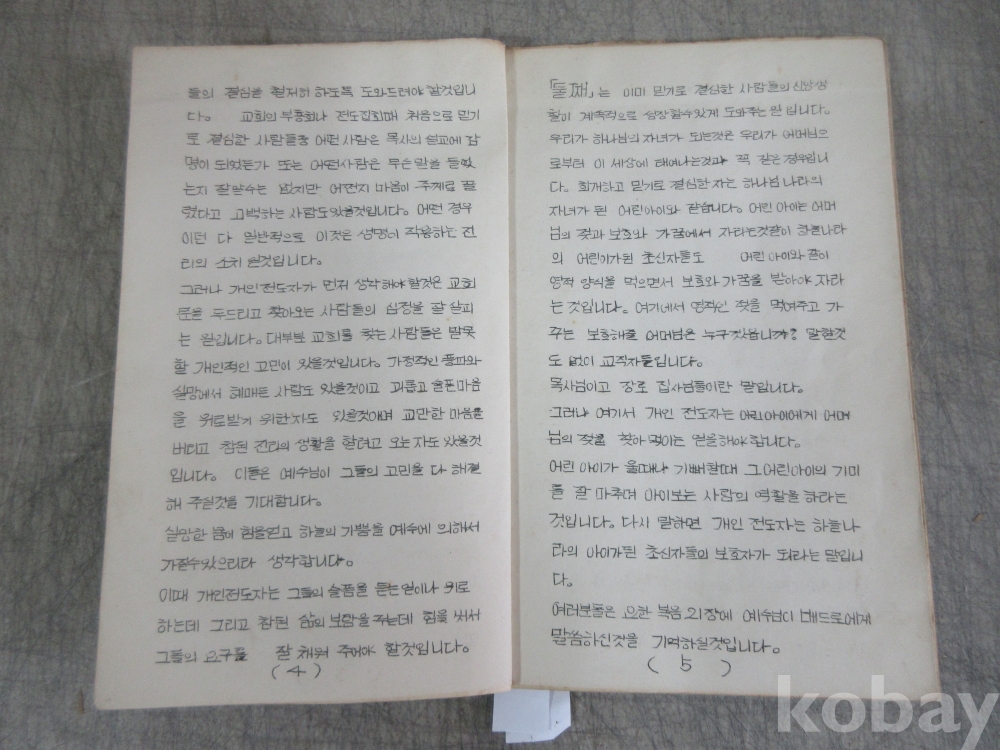 들의 결심을 철저히 하도록 도와드려야 할것입니
다。 교회의 부흥회나 전도집회때 처음으로 믿기
로 결심한 사람들중 어떤 사람은 목사의 설교에 감
명이 되었든가 또는 어떤사람은 무슨일을 들었
는지 잘알수는 없지만 어쩐지 마음이 주께로 끌
렸다고 고백하는 사람도있을것입니다。 어떤 경우
이던 다 일반적으로 이것은 생명이 작용하는 진
리의 소치 일것입니다。
그러나 개인전도자가 먼저 생각해야 할것은 교회
문을 두드리고 찾아오는 사람들의 심정을 잘 살피
는 일입니다。대부분 교회를 찾는 사람들은 말못
할 개인적인 고민이 있을것입니다。 가정적인 풍파와
실망에서 헤매든 사람도 있을것이고 괴롭고 슬픈마음
을 위로받기 위한자도 있을것이며 교만한 마음을
버리고 참된 진리의 생활을 할려고 오는 자도 있을것
입니다。 이들은 예수님이 그들의 고민을 다 해결
해 주실것을 기대합니다。
실망한 몸에 힘을얻고 하늘의 기쁨을 예수에 의해서
가질수있으리라 생각합니다。
이때 개인전도자는 그들의 슬픔을 듣는일이나 위로
하는데 그리고 참된 삶의 보람을 주는데 힘을 써서
그들의 요구를 잘 채워 주어야 할것입니다。
(4)
「둘째」는 이미 믿기로 결심한 사람들의 신앙생
활이 계속적으로 성장할수있게 도와주는 일 입니다。
우리가 하나님의 자녀가 되는것은 우리가 어머님으
로부터 이 세상에 태어나는것과 꼭 같은 경우입니
다。 회개하고 믿기로 결심한 자는 하나님 나라의
자녀가 된 어린아이와 같습니다。 어린 아이는 어머
님의 젖과 보호와 가꿈에서 자라는것같이 하늘나라
의 어린이가된 초신자들도 어린 아이와 같이
영적 양식을 먹으면서 보호와 가꿈을 받아야 자라
는 것입니다。 여기에서 영적인 젖을 먹여주고 가
꾸는 보호해줄 어머님은 누구겠읍니까? 말할것
도 없이 교직자들입니다。
목사님이고 장로 집사님들이란 말입니다。
그러나 여기서 개인 전도자는 어린아이에게 어머
님의 젖을 찾아 먹이는 일을해야 합니다。
어린 아이가 울때나 기뻐할때 그어린아이의 기미
를 잘 마추며 아이보는 사람의 역할을 하라는
것입니다。 다시 말하면 개인 전도자는 하늘나
라의 아이가된 초신자들의 보호자가 되라는 말입니
다。
여러분들은 요한 복음 21장에 예수님이 베드로에게
말씀하신것을 기억하실것입니다。
(5)
kobay